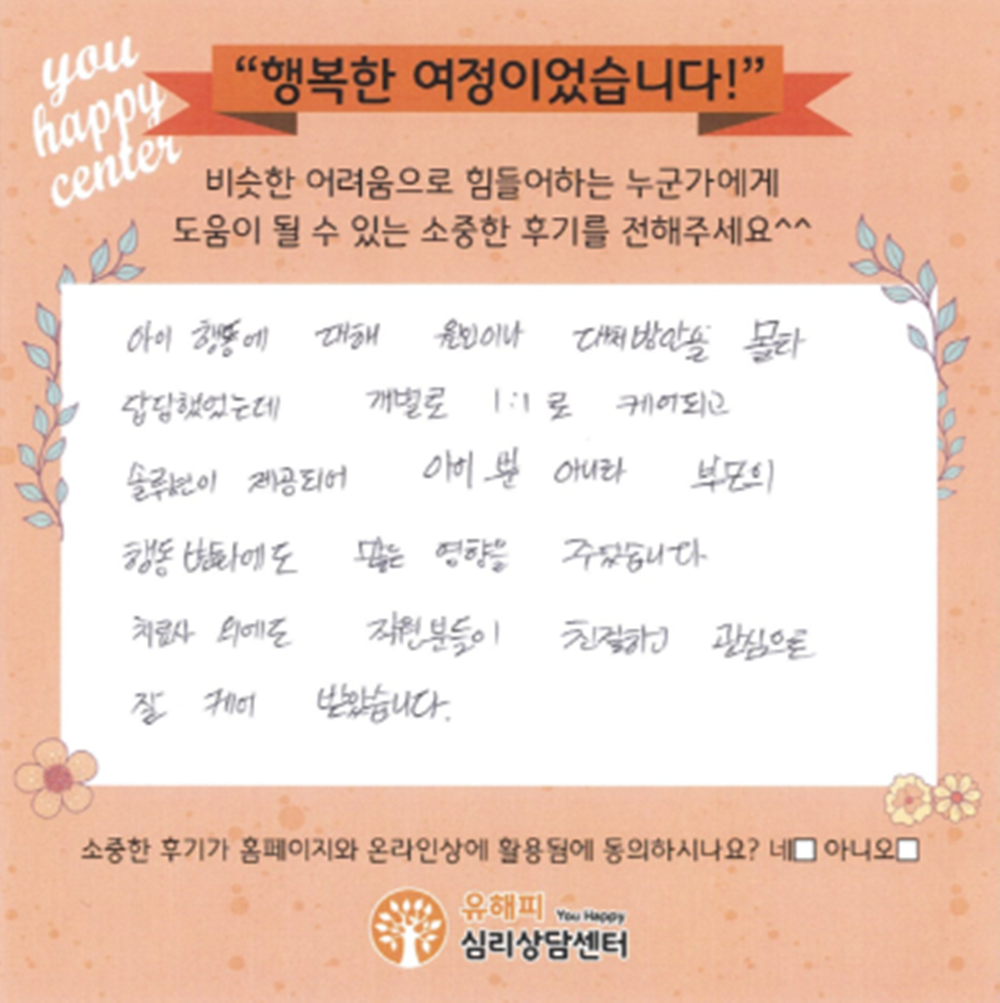 you
happy
center
“행복한 여정이었습니다!”
비슷한 어려움으로 힘들어하는 누군가에게
도움이 될 수 있는 소중한 후기를 전해주세요^^
아이 행동에 대해 원인이나 대처방안을 몰라
답답했었는데 개별로 1:1로 케어되고
솔루션이 제공되어 아이 뿐 아니라 부모의
행동 변화에도 많은 영향을 주었습니다
치료사 외에도 직원분들이 친절하고 관심으로
잘 케어 받았습니다.
소중한 후기가 홈페이지와 온라인상에 활용됨에 동의하시나요? 네 아니오
유해피 You Happy
심리상담센터